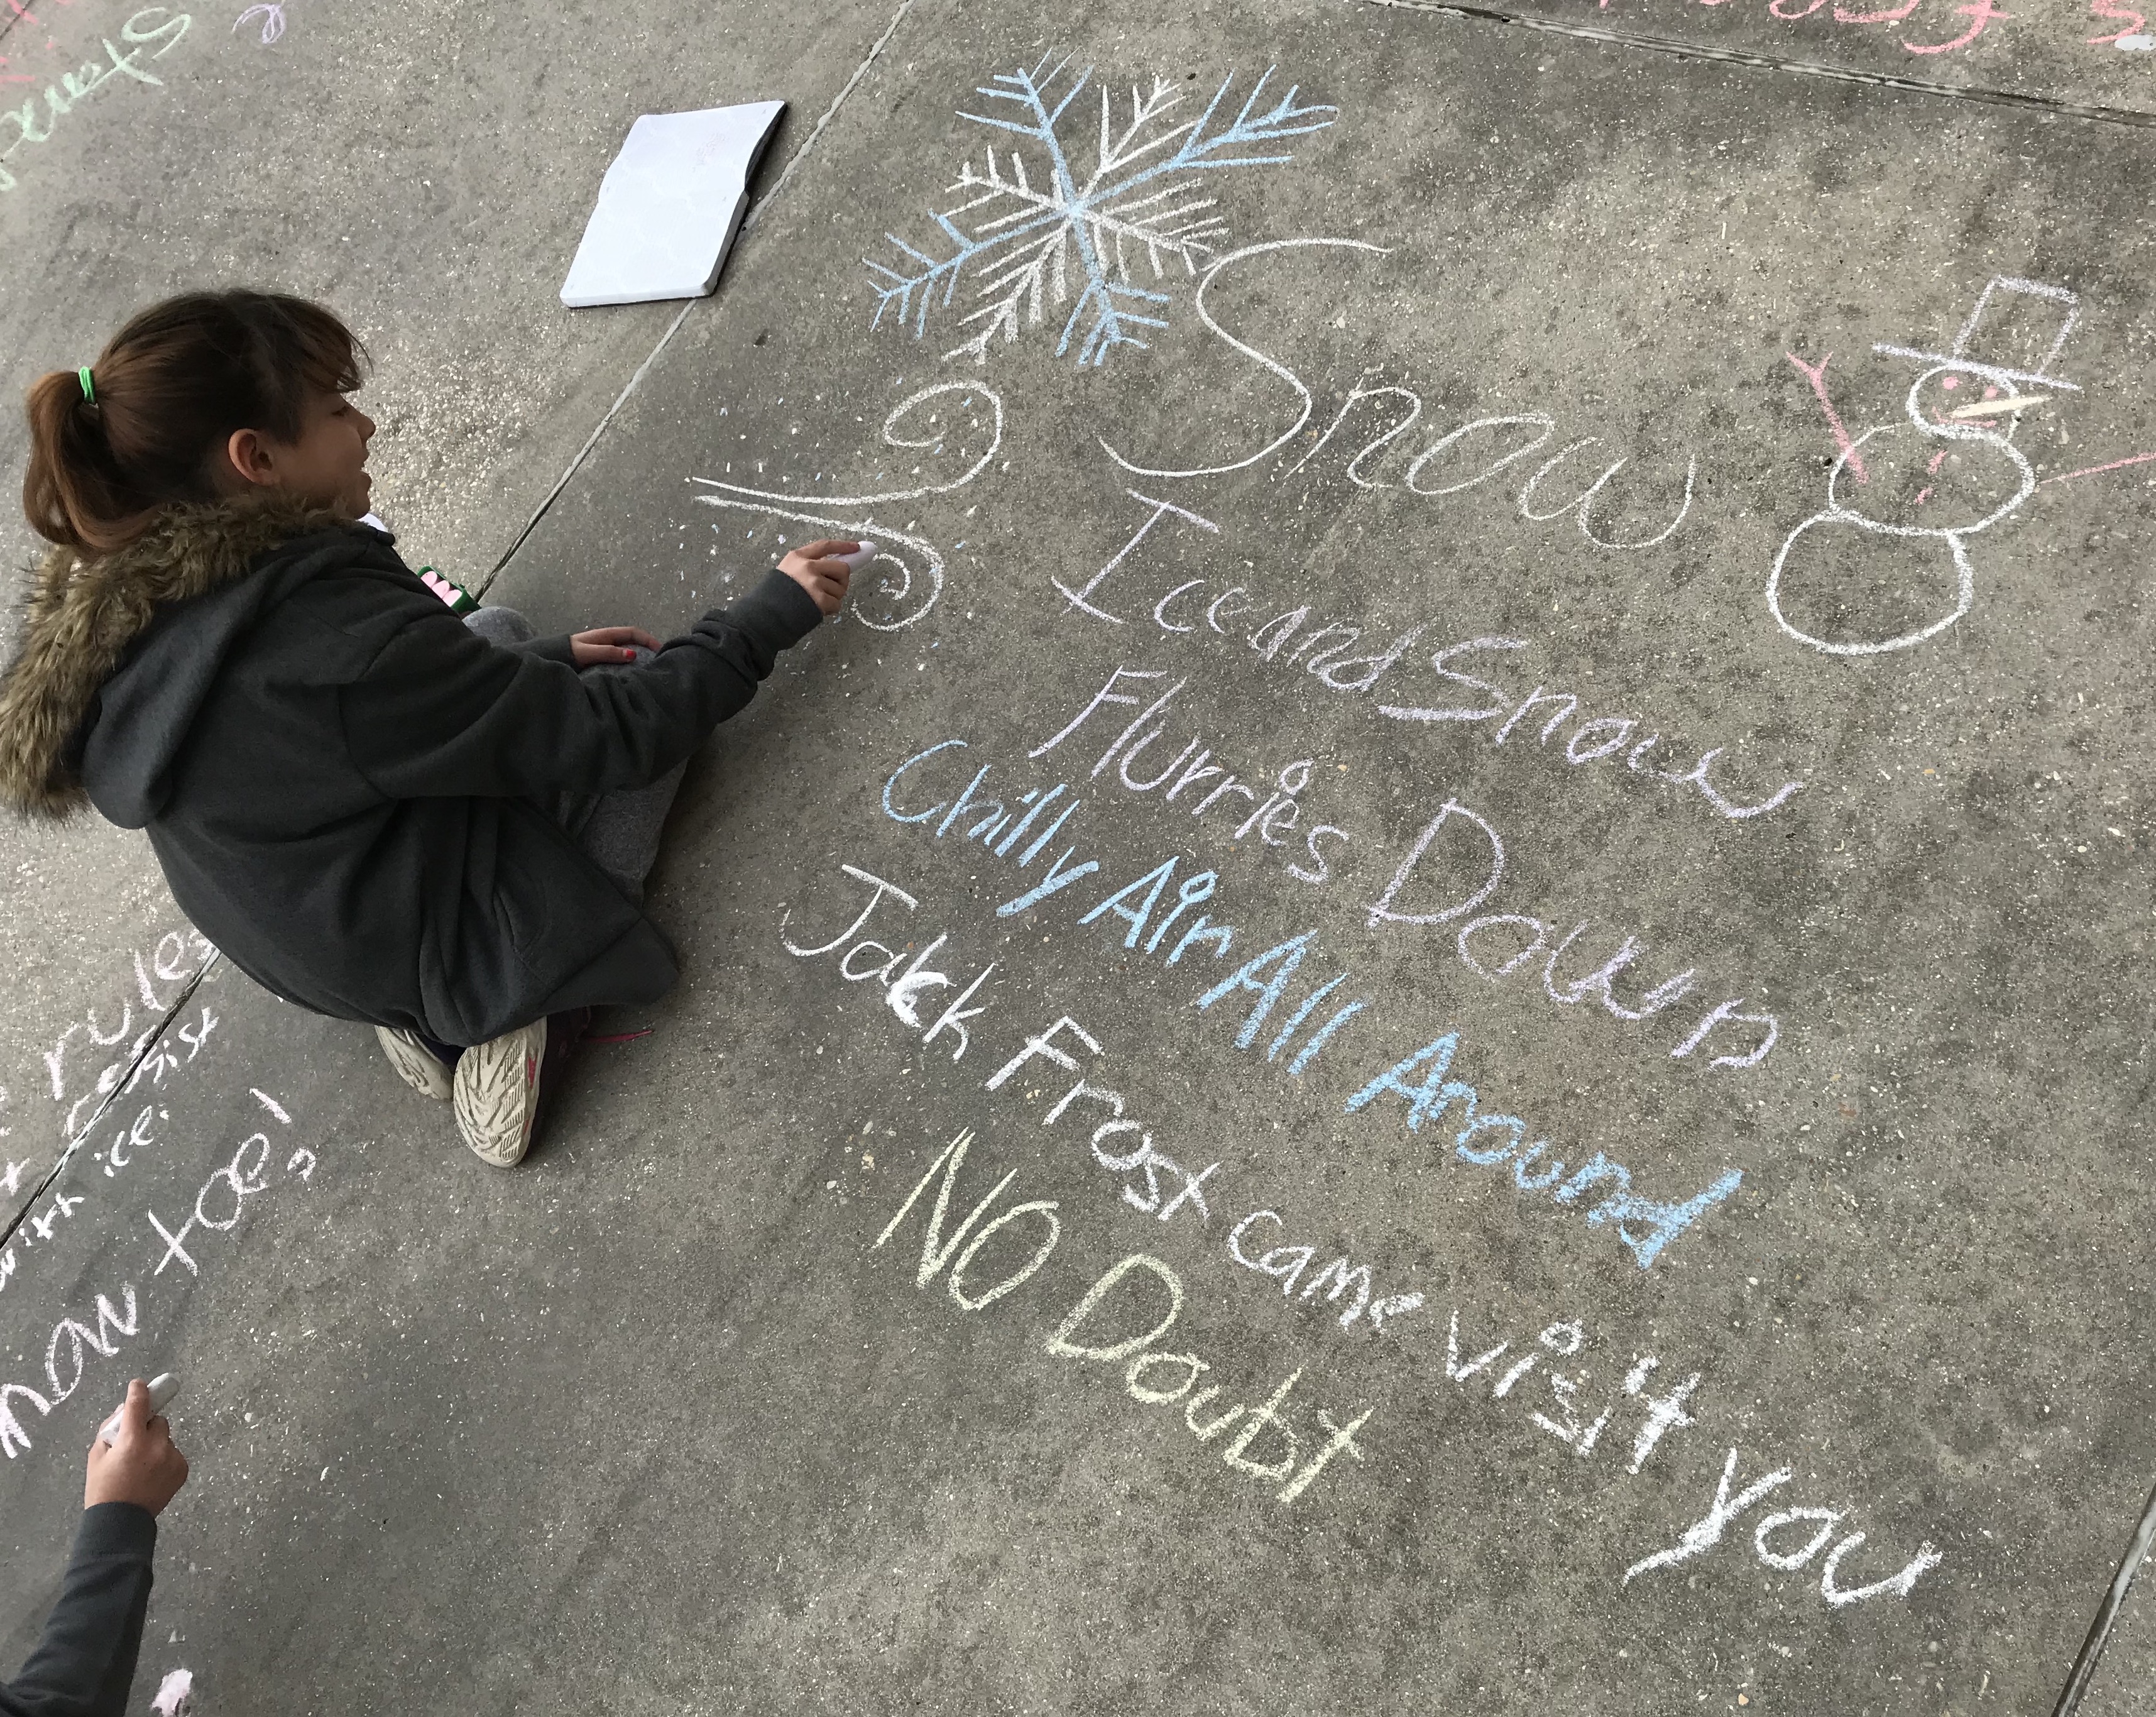 Snow
Ice and Snow
Flurries Down
Chilly Air All Around
Jack Frost came visit you
NO Doubt
rules
resist
with ice.
now too!